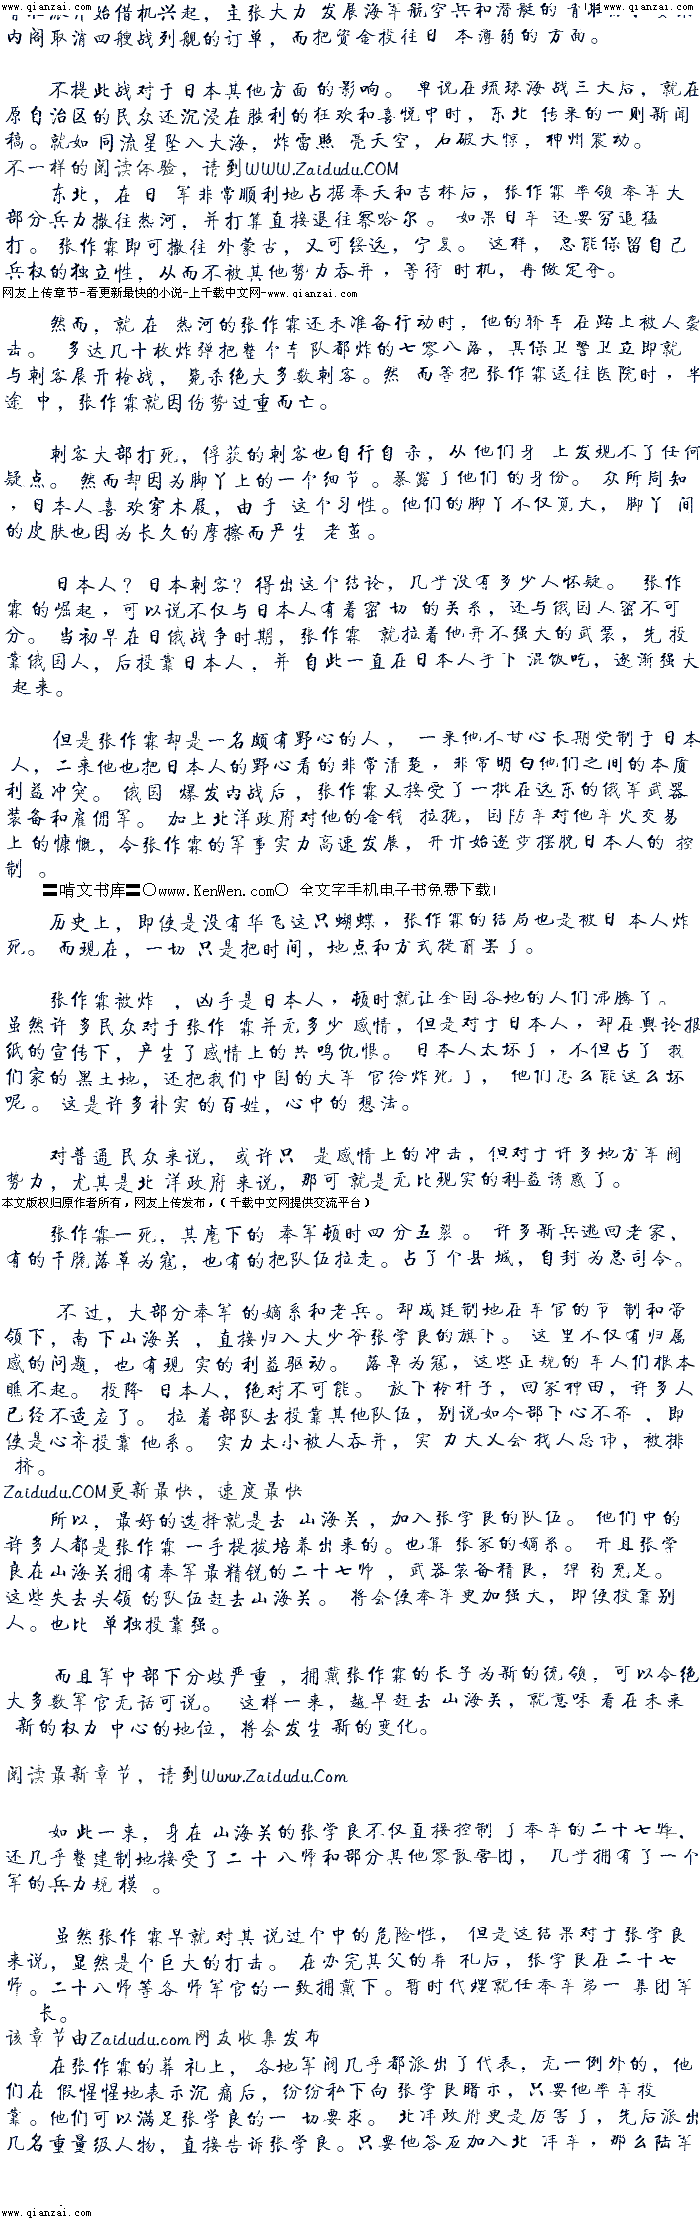 www.qianzai.com www.qianzai.com
内阁取消四艘战列舰的订单，而把资金投往日 本薄弱的 方面。
不提此战对于日本其他方面 的影响。 单说在琉球海 战三天后，就在
原自治区的民众还沉浸在胜利的狂欢和喜悦中时，东北 传来的一则新闻
稿。就如 同流星坠入大海，炸雷照 亮天空，石破天惊，神州震动。
不一样的阅读体验，请到WWW.Zaidudu.COM
东北，在 日 军非常顺利地占据奉天和吉林后，张作霖 率领 奉军大
部分兵力撤往热河，并打算直接退往察哈尔 。 如果日军 还要穷追猛
打。 张作霖即可撤往 外蒙古，又可绥远，宁夏。 这样，总能保留自己
兵权的独立性，从而不被其他势力吞并，等待 时机，再做定夺。
网友上传章节-看更新最快的小说-上千载中文网-www.qianzai.com
然而，就 在 热河的张作霖还未准备行动时，他的轿车 在路上被人袭
击。 多达几十枚炸弹把整个车 队都炸的七零八落，具保卫警卫立即就
与刺客展开枪战， 毙杀绝大多数刺客。然 而等把 张作霖送往医院时，半
途 中，张作霖就因伤势过重而亡。
刺客大部打死，俘获的刺客也自行自 杀，从 他们身 上发现不了任何
疑点。 然而却因为脚丫上的一个细节。暴露了他们 的身份。 众所周知
，日本人喜 欢穿木屐，由于 这个习性。他们的脚丫不仅宽大， 脚丫 间
的皮肤也因为长久的摩擦而产生 老茧。
日本人？日本刺客？得出这个结论，几乎没有多少人怀疑。 张作
霖 的崛起，可以说不仅与日本人有着密 切 的关系，还与俄国人密不可
分。 当初早在日俄战争时期，张作霖 就拉着他并不强大的武装，先 投
靠俄国人，后投靠日本人，并 自此一直在日本人手下 混饭吃，逐渐强大
起来。
但是张作霖却是一名颇有野心的人， 一来他不甘心长期受制于日本
人，二来他也把日本人的野心看的非常清楚，非常明白他们之间的本质
利益冲突。 俄国 爆发内战后，张作霖又接受了一批在远东的俄军武器
装备和雇佣军。 加上北洋政府对他的金钱 拉拢，国防军对他军火交易
上 的慷慨，令张作霖的军事实力高速发展，并开始逐步摆脱日本人的 控
制 。
〓啃文书库〓○www.KenWen.com○ 全文字手机电子书免费下载!
历史上，即使是没有华飞这只蝴蝶，张作霖的结局也是被日 本人炸
死。 而现在，一切 只是把时间，地点和方式提前罢了。
张作霖被炸 ，凶手是日本人，顿时就让全国各地的人们沸腾了。
虽然许 多民众对于张作 霖并无多少 感情，但是对于日本人，却在舆论报
纸的宣传下，产生了感情上的共鸣仇恨。 日本人太坏了，不但占了 我
们家的黑土地，还把我们中国的大军 官给炸死 了， 他们怎么能这么坏
呢。 这是许多朴实 的百姓，心中的 想法。
对普通民众来说，或许只 是感情上的冲击，但对于许多地方军阀
势力，尤其是北 洋政府 来说，那可 就是无比现实的利益诱惑了。
本文版权归原作者所有，网友上传发布，（千载中文网提供交流平台）
张作霖一死，其麾下的 奉军顿时四分五裂 。 许多新兵逃回老家，
有的干脆落草为寇，也有的把队伍拉走。占了个县 城，自封 为总司令。
不 过，大部分奉军 的嫡系和老兵。却成建制地在军官的节 制和带
领下，南 下山海关 ，直接归入大少爷张学良的旗下。 这 里不仅有归属
感的问题，也 有现 实的利益驱动。 落草为寇，这些正规的 军人们根本
瞧不起。 投降 日本人，绝对不可能。 放下枪杆子，回家种田，许多人
已经不适应了。 拉 着部队去投靠其他队伍，别说如今部下心不齐 ，即
使是心齐投靠 他系。 实力太小被人吞并，实 力大又会找人忌讳，被排
挤。
Zaidudu.COM更新最快，速度最快
所以，最好的选择就是去 山海关 ，加入张学良的队伍。 他们中的
许多人都是张作霖 一手提拔培养出来的。也算 张家的嫡系。 并且张学
良在山海关拥有奉军最精锐的二十七师 ，武器装备精良，弹药 充足。
这些失去头领 的队伍赶去山海关。 将会使奉军更加强大，即使投靠别
人。也比 单独投靠强。
而且军中部下分歧严重 ，拥戴张作霖的长子为新的统领，可以令绝
大多数军官无话可说。 这样一来，越早赶去 山海关，就意味 着在未来
新的权力 中心的地位，将会发生 新的变化。
阅读最新章节，请到Www.Zaidudu.Com
如 此一来，身在 山海关的张学良不仅直接控制 了奉军的二十七师，
还几乎整建制地接受了二 十 八师和部分其他零散零团， 几乎拥有了一个
军的兵力规 模 。
虽然张作 霖早就 对其 说过个中的危险性， 但是这结果对于张学良
来说，显然是个巨大的打击。 在办完其父的葬 礼后，张学良在二十七
师。二十八师等各 师军官的一致拥戴下。暂时代理就任奉军第一 集团军
长。
该章节由Zaidudu.com网友收集发布
在张作霖的葬 礼上，各地军阀几乎都派出了代表，无一例外的，他
们在 假惺惺地表示沉 痛后，纷纷私下向 张学良暗示，只要他率军投
靠。他们可以满足张学良的一 切要求。 北洋政府更是厉害了，先后派出
几名重量级人物，直接告诉张学良。只要他答应加入北 洋军，那么陆军
www.qianzai.com